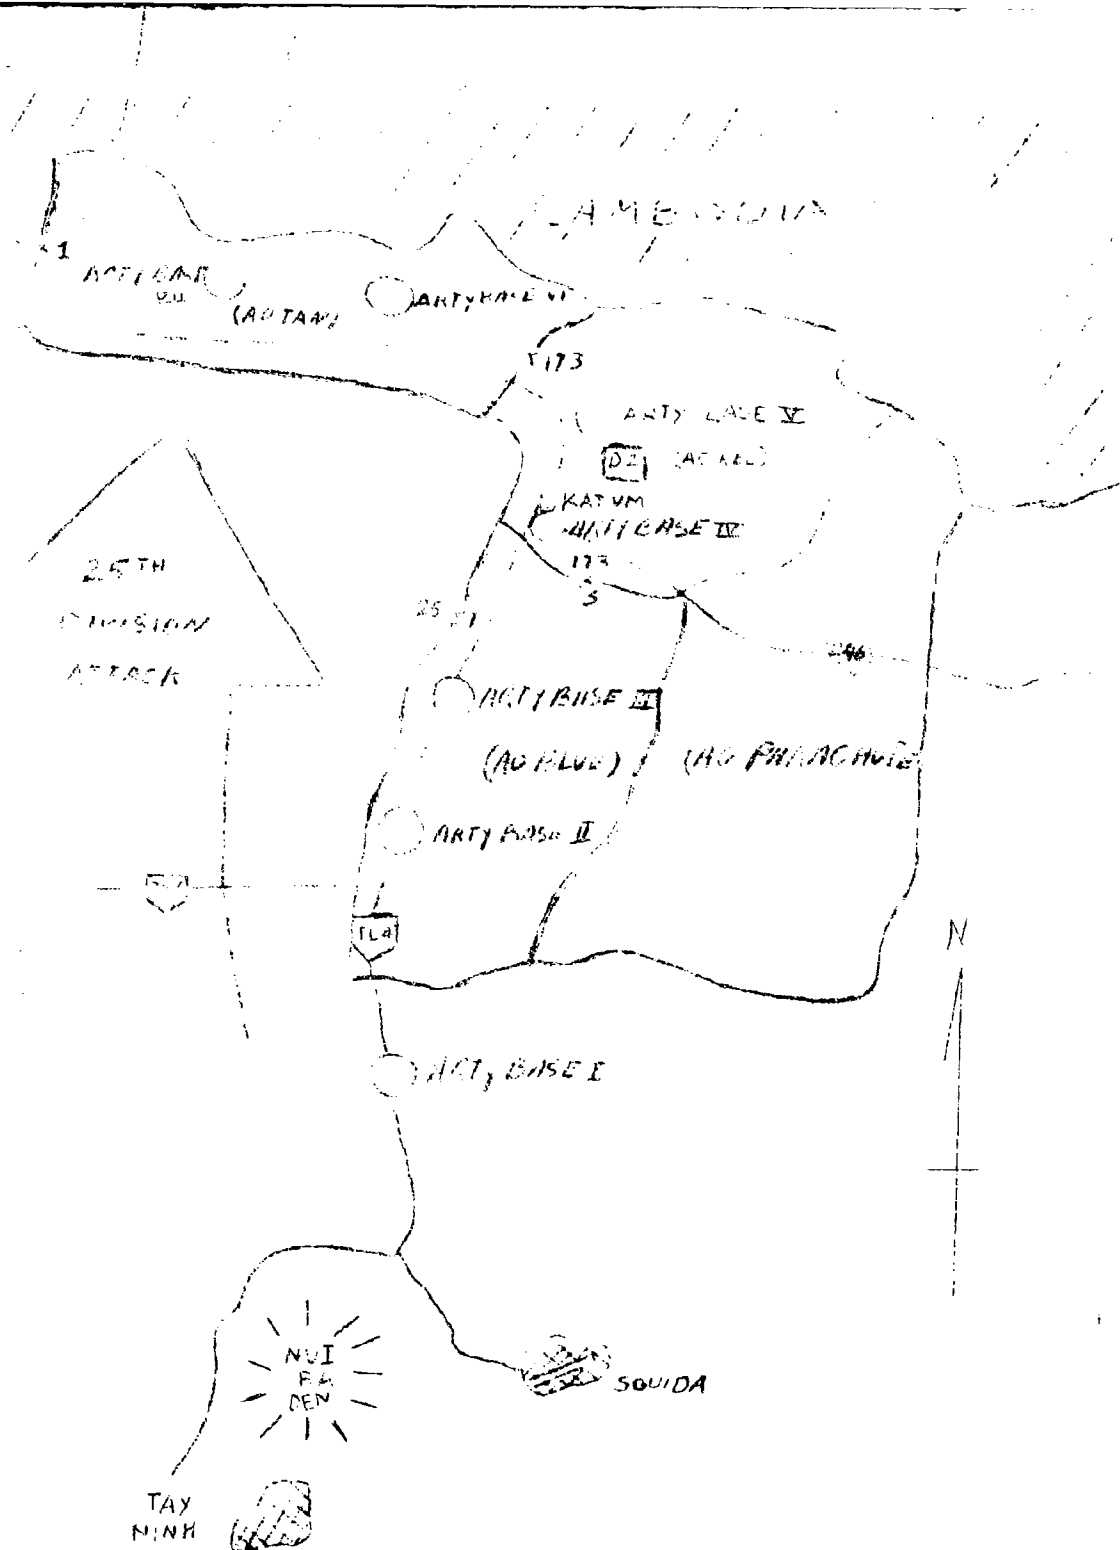 1
(AO TAN)
ARTY BASE VI
173
ARTY BASE V
DZ
KATUM
ARTY BASE IV
173
S
25TH
DIVISION
ATTACK
25
246
ARTY BASE III
(AO BLUE)
(AO PARACHUTE
ARTY BASE II
TL4
N
ARTY BASE I
NUI
BA
DEN
SOUIDA
TAY
NINH